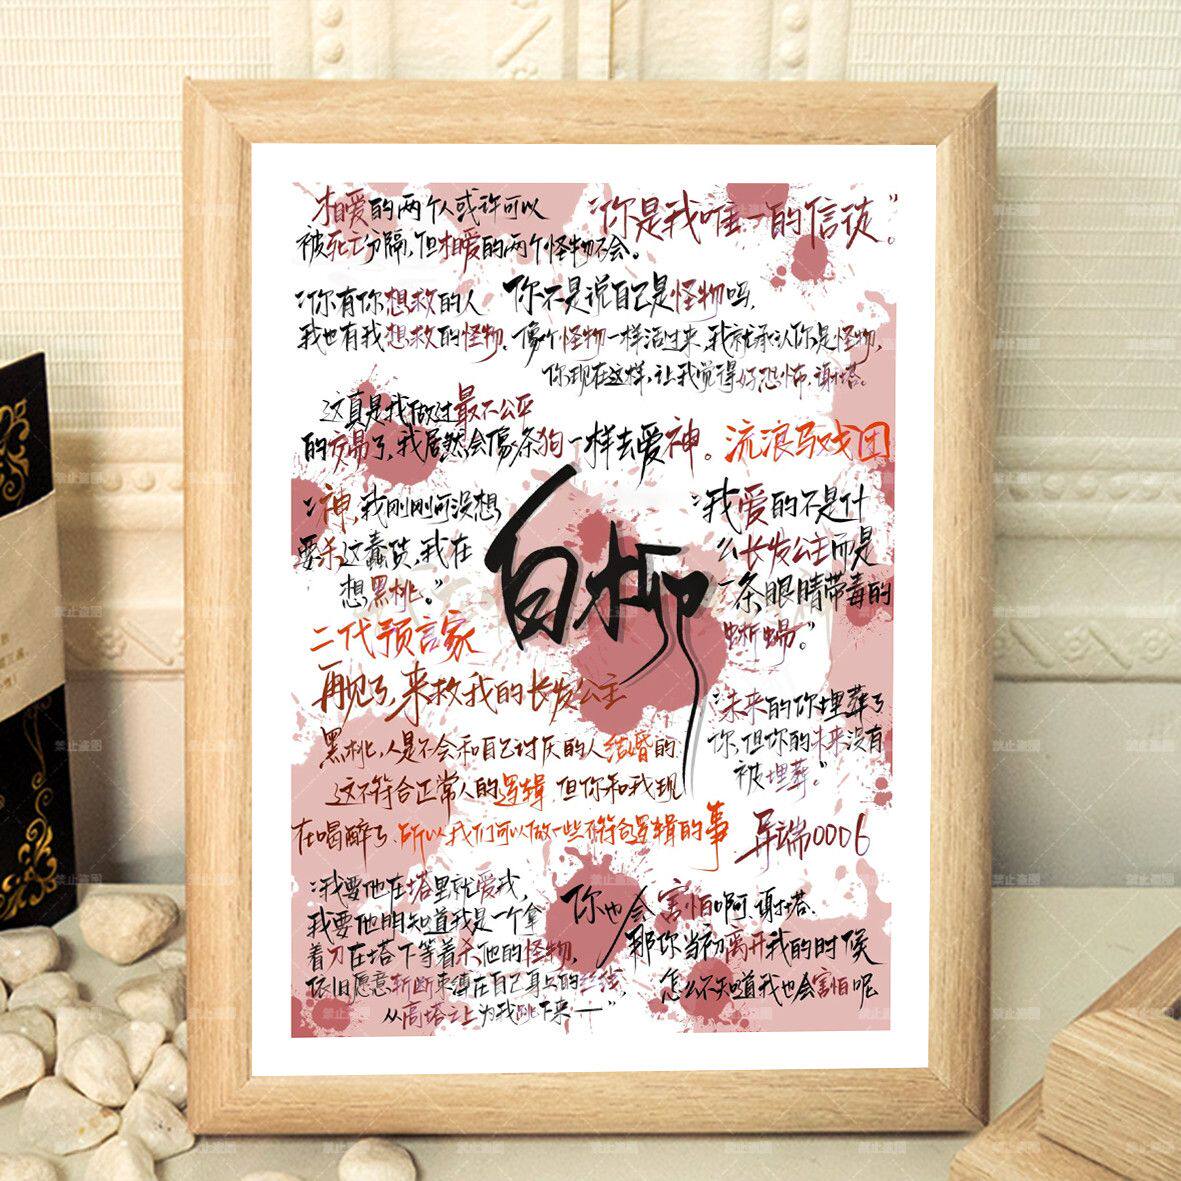 相爱的两个人或许可以
被死亡分隔,但相爱的两个怪物不会。
“你是我唯一的信徒。”
“你有你想救的人
我也有我想救的怪物。
你不是说自己是怪物吗,
像个怪物一样活过来,我就承认你是怪物,
你现在这样,让我觉得好恐怖,谢塔。
这真是我做过最不公平
的交易了,我居然会像条狗一样去爱神。
流浪马戏团
“神,我刚刚可没想
要杀这蠢货,我在
想黑桃。”
白柳
“我爱的不是什
么长发公主而是
一条眼睛带毒的
蜥蜴。”
二代预言家
再见了,来救我的长发公主
“未来的你埋葬了
你,但你的未来没有
被埋葬。”
黑桃,人是不会和自己讨厌的人结婚的
这不符合正常人的逻辑,但你和我现
在喝醉了,所以我们可以做一些不符合逻辑的事
异端0006
“我要他在塔里就爱我,
我要他明知道我是一个拿
着刀在塔下等着杀他的怪物,
依旧愿意斩断束缚在自己身上的丝线,
从高塔之上为我跳下来——”
你也会害怕啊,谢塔,
那你当初离开我的时候
怎么不知道我也会害怕呢
禁止盗图